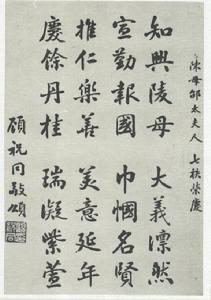 陳母邹太夫人 七秩榮慶
知興陵母 大義凜然
宣勤報國 巾幗名賢
推仁樂善 美意延年
慶餘丹桂 瑞凝紫萱
顧祝同敬頌